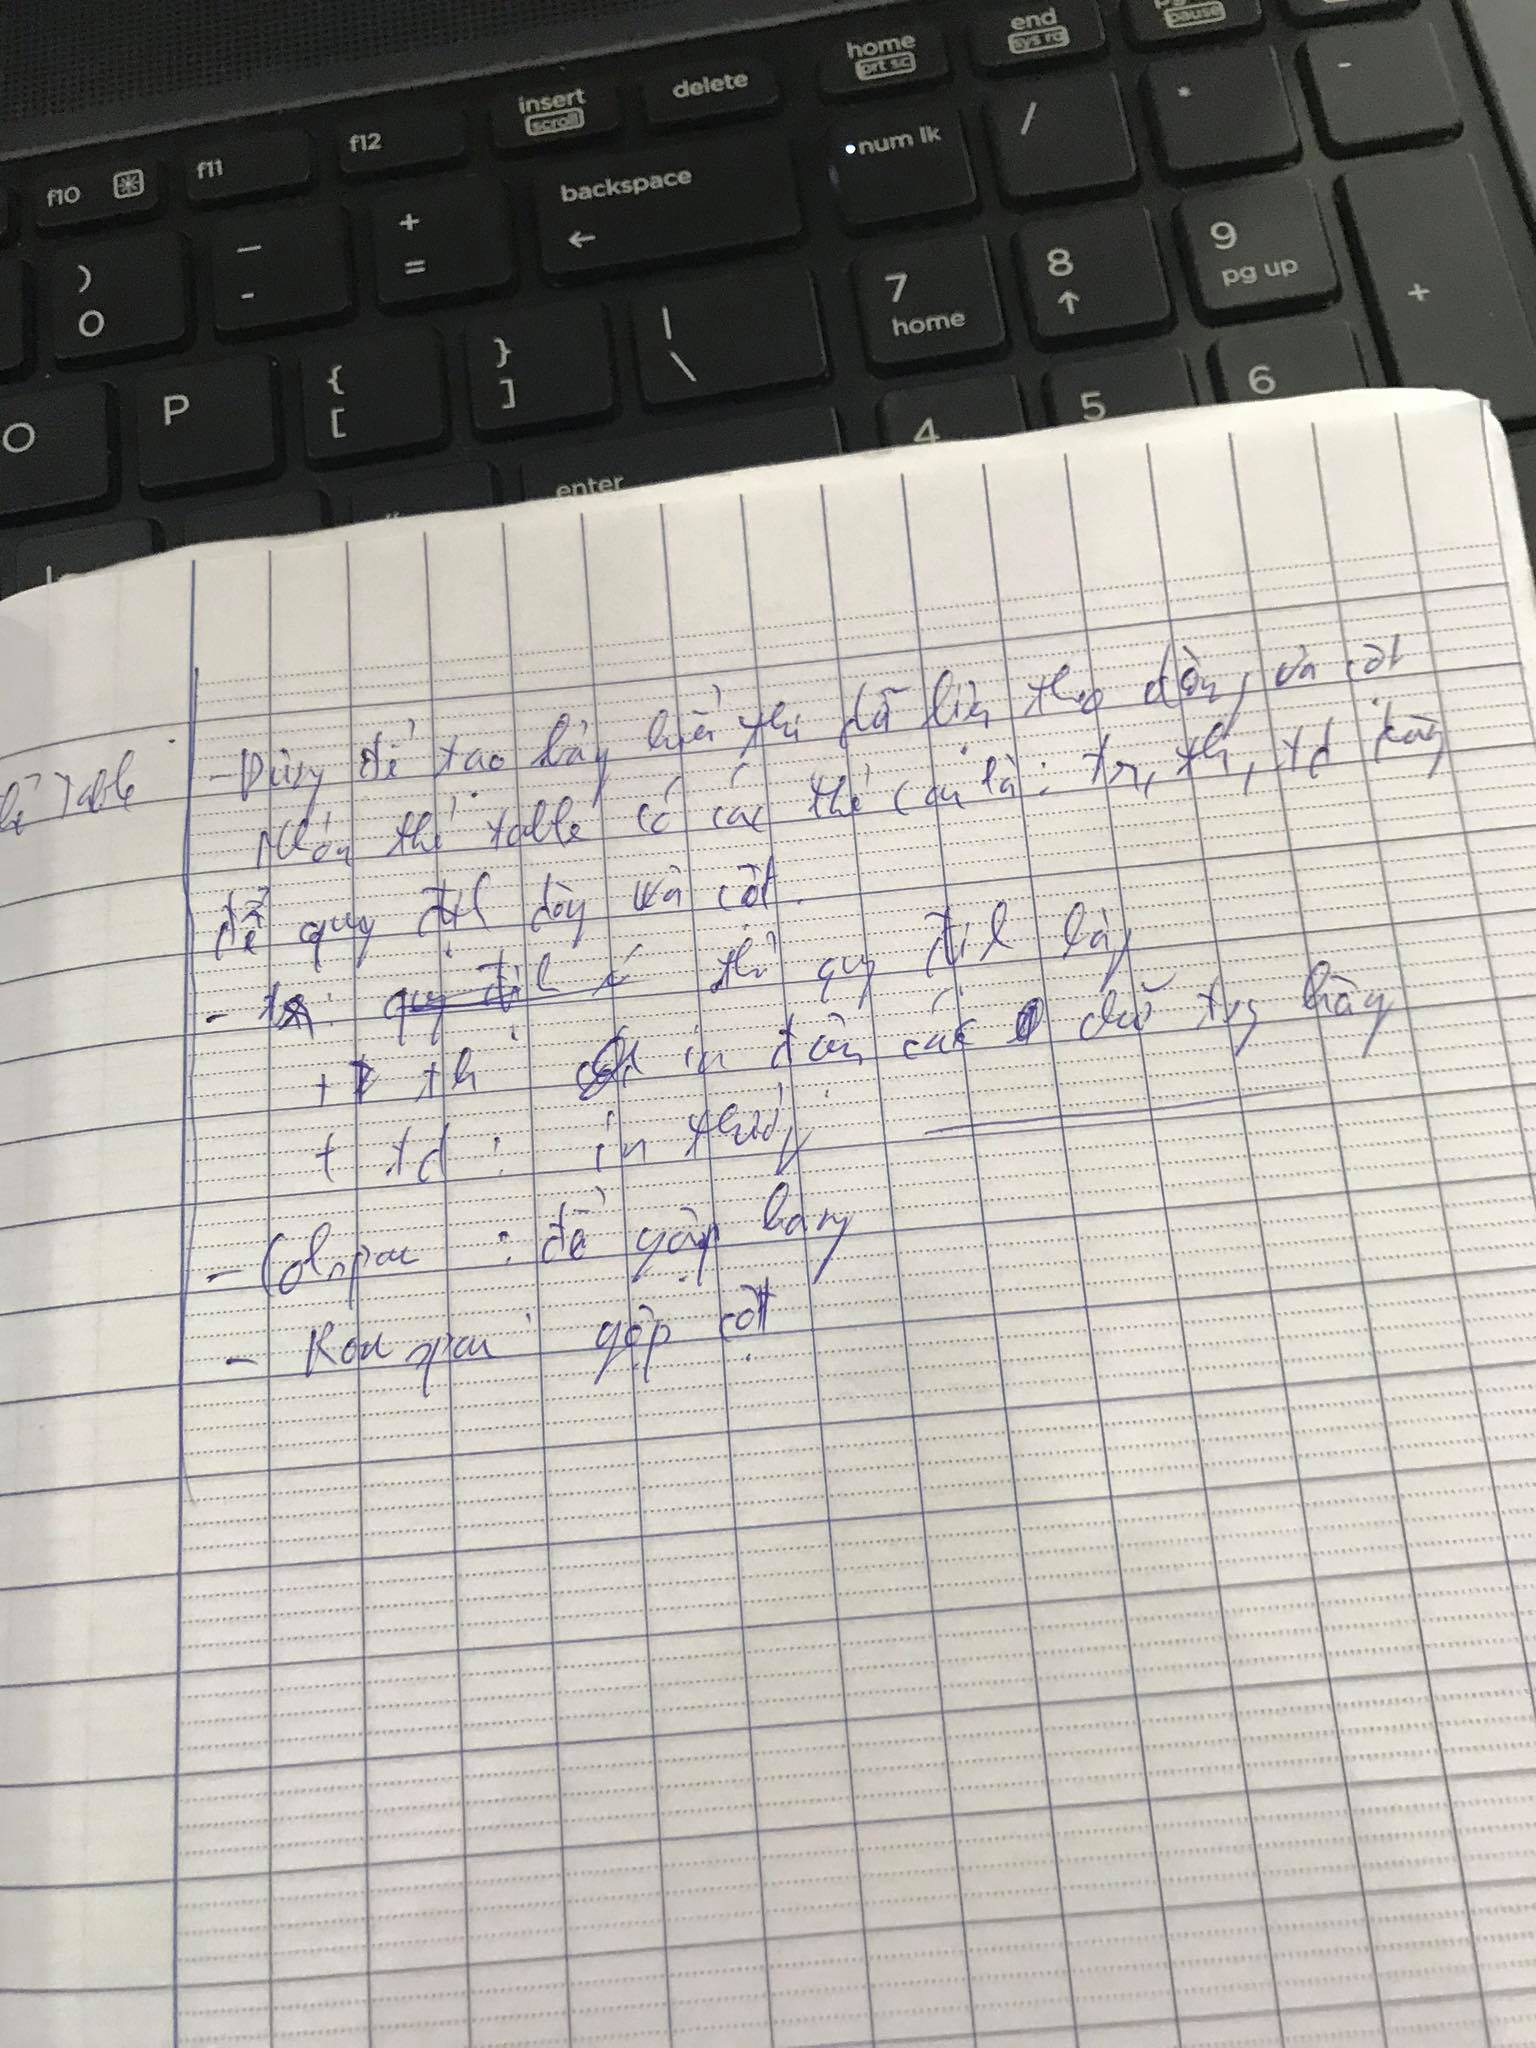 f10 f11 f12 insert scroll delete home prt sc end sys rq pause
) 0 _ - + = backspace ← num lk / * -
O P { [ } ] | \ 7 home 8 ↑ 9 pg up +
enter 4 5 6
Table
- Dùng để tạo bảng hiển thị dữ liệu theo dòng và cột
Nhóm thẻ table có các thẻ con là: tr, th, td
để quy định dòng và cột.
- tr: thẻ quy định hàng
+ th in đậm các chữ trg hàng
+ td: in thường
- Colspan: để gộp hang
- Rowspan: gộp cột